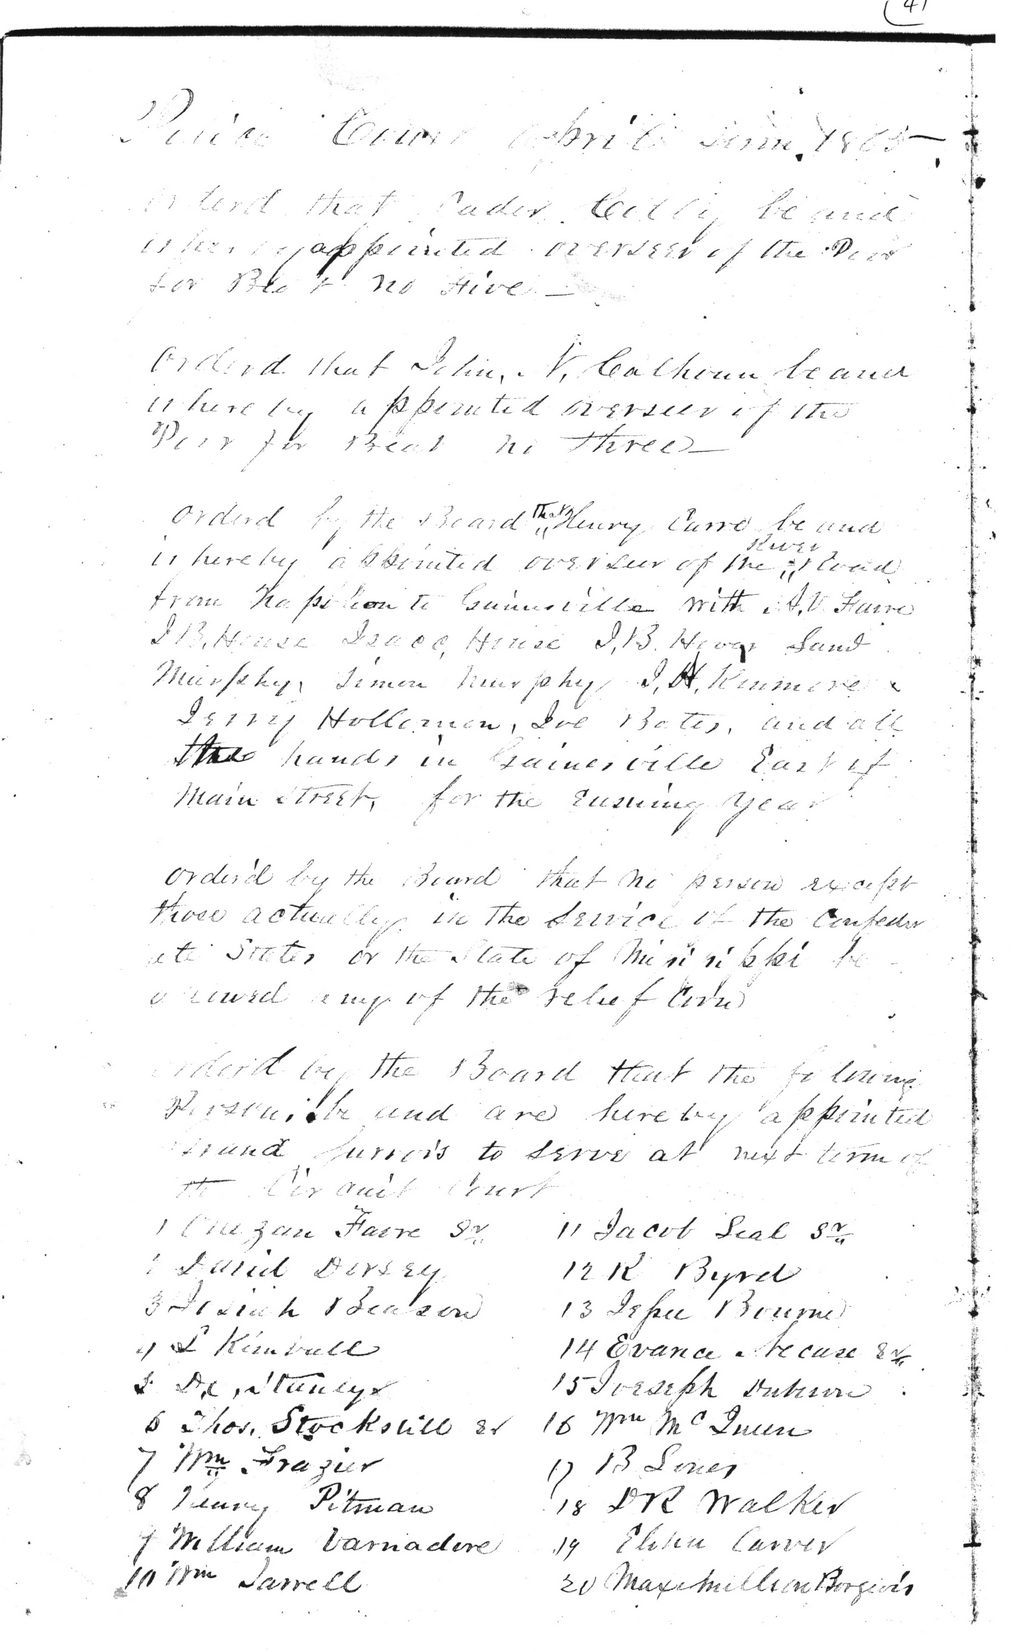 41
Police Court April Term, 1865
Orderd that Cader be and
is hereby appointed overseer of the Poor
for Beat no Five
Orderd that John, N, Calhoun be and
is hereby appointed overseer of the
Poor for Beat no three
Orderd by the Board that Henry Carro be and
is hereby appointed overseer of the River Road
from Napoleon to Gainesville with A, V. Favre
J B, House Isaac, House J, B, Hover Sant
Murphy, Simon Murphy, J, H, Kinmore
Jerry Holleman, Joe Bates, and all
the hands in Gainesville East of
Main Street, for the Ensuing Year
Orderd by the Board that no person except
those actually in the Service of the Confeder
ate States or the State of Missisippi be
allowed any of the relief Corn
Orderd by the Board that the folowing
Persons, be and are hereby appointed
Grand Jurrors to serve at next term of
the Circuit Court
1 Onezan Favre Sr
11 Jacob Seal Sr
2 David Dorsey
12 R Byrd
3 Josiah Beason
13 Jesse Bourne
4 S Kimball
14 Evance Necase Sr
5 Dr, Stanley
15 Joeseph
6 Thos, Stockstill Sr
16 Wm McQueen
7 Wm Frazier
17 B Jones
8 Henry Pitman
18 D R Walker
9 William Varnadore
19 Elihu Carver
10 Wm Jarrell
20 Maxemillion Borgeois